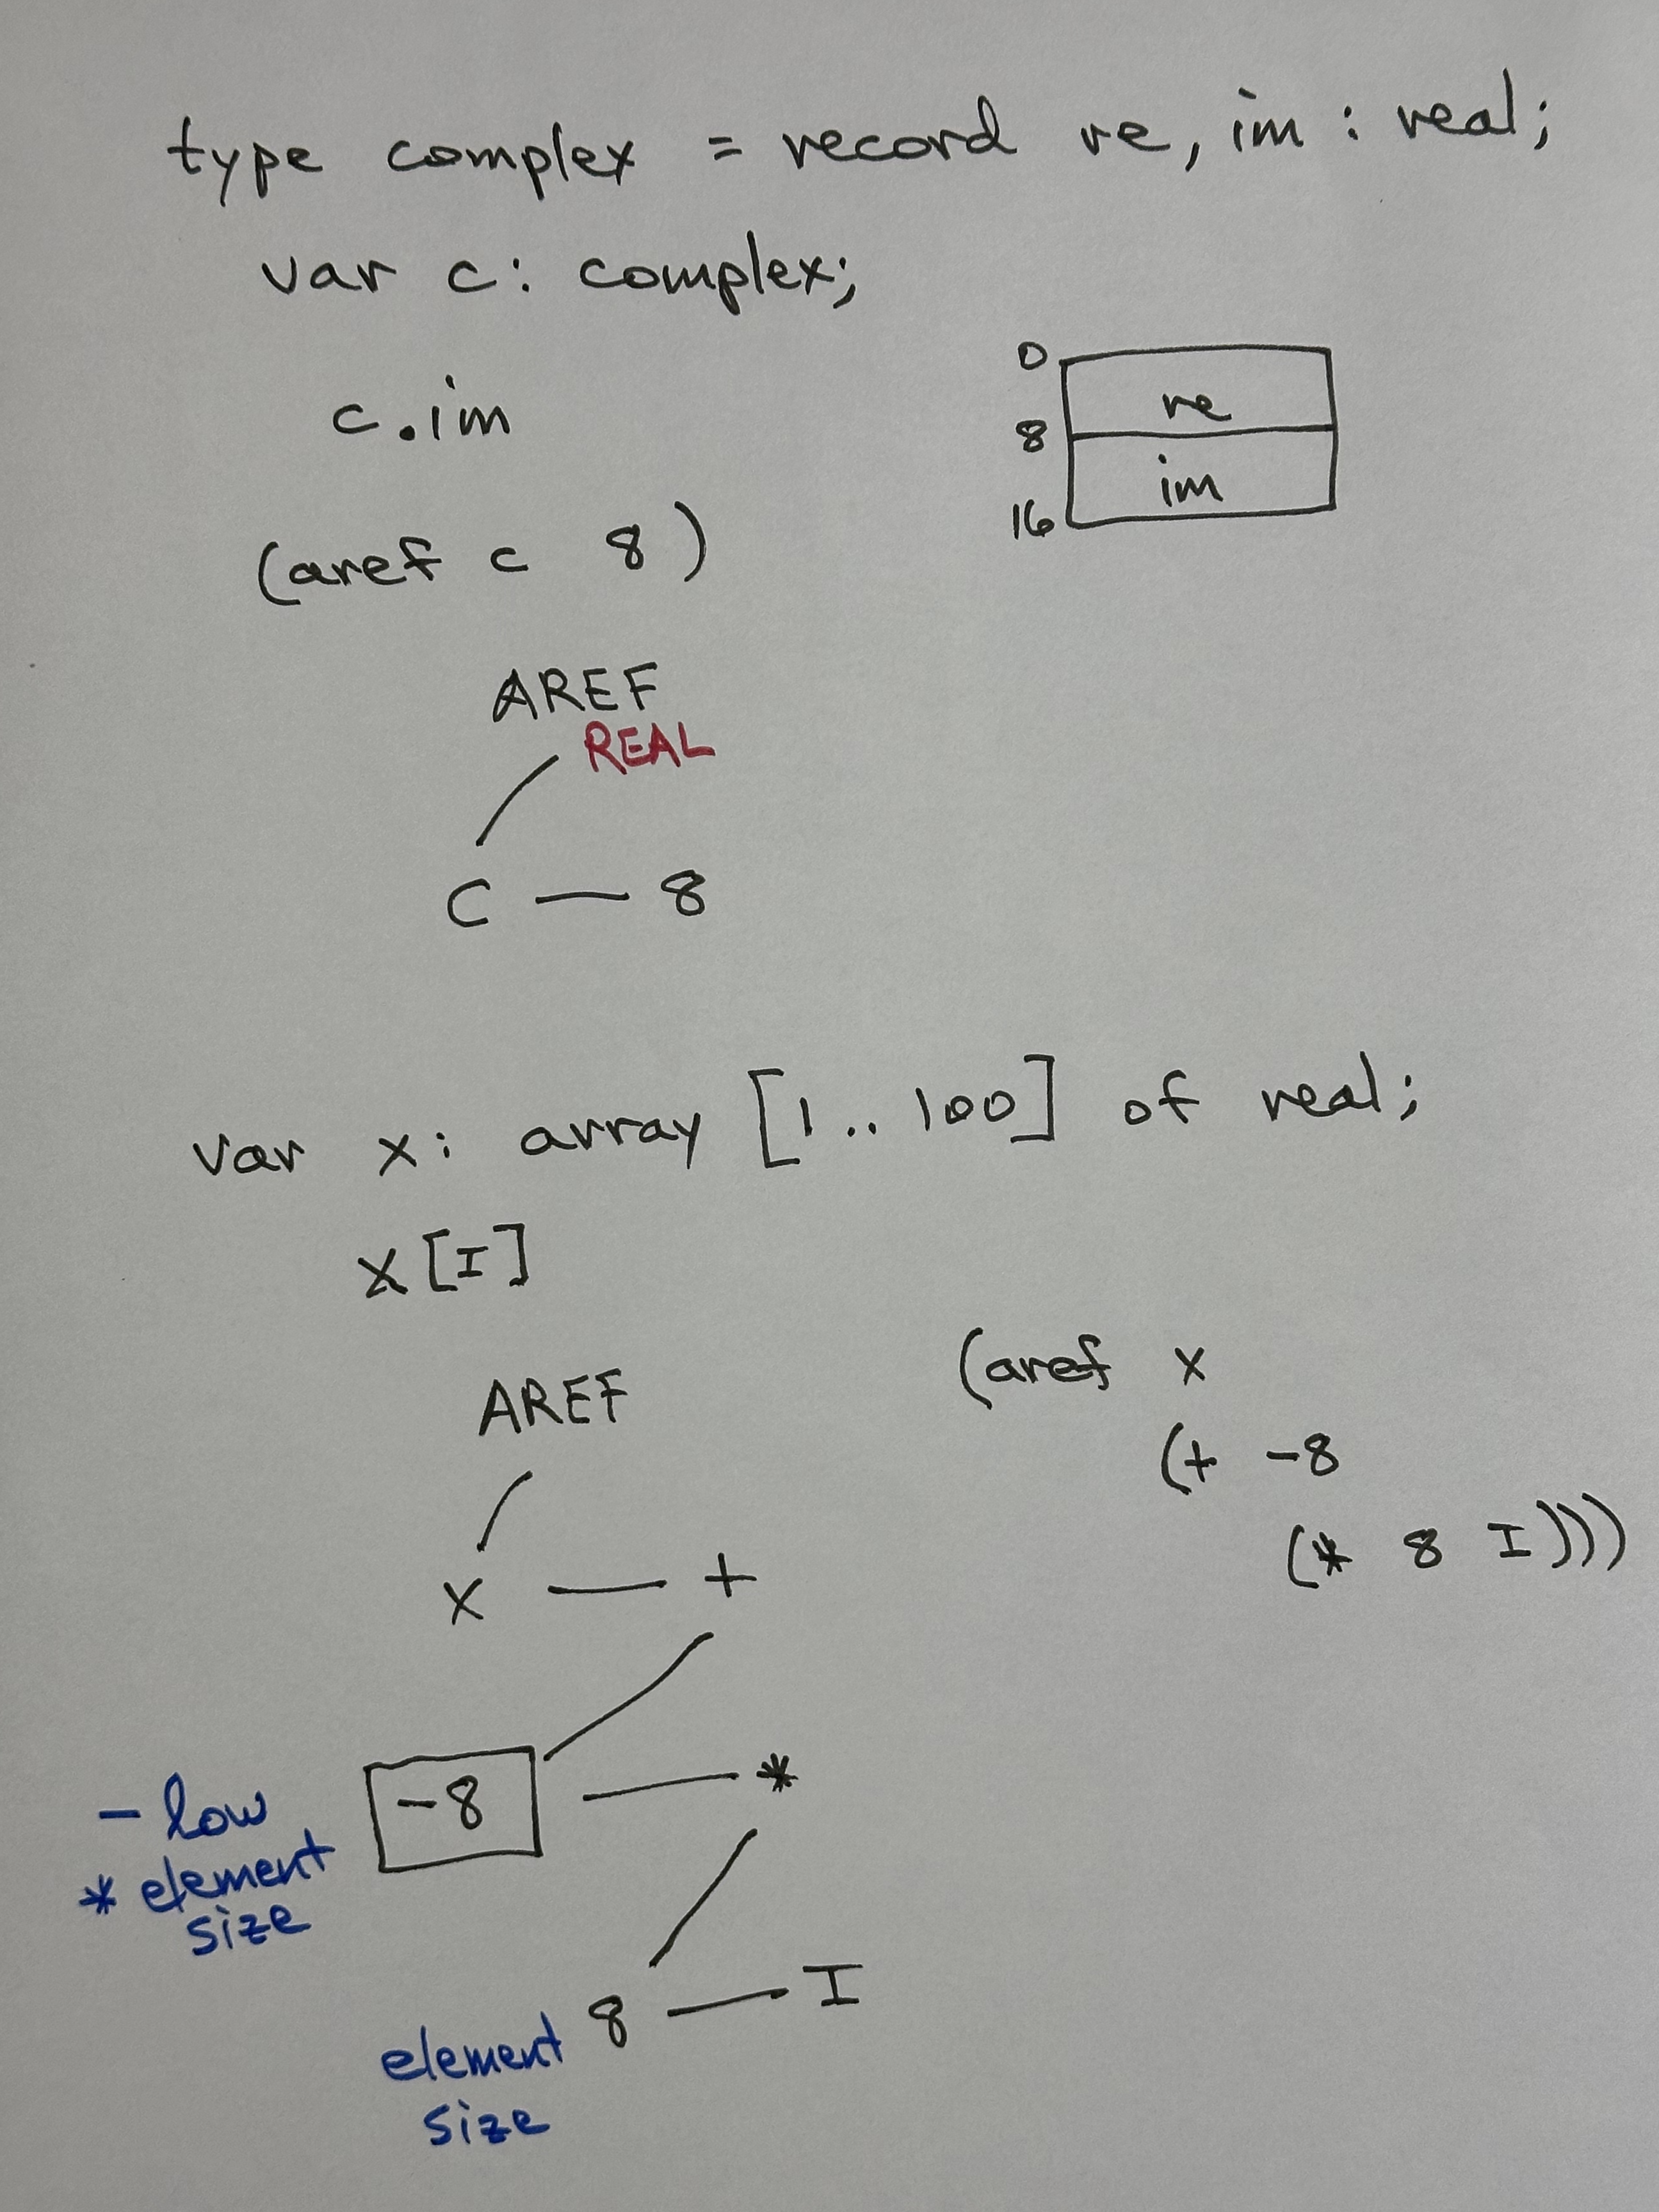 type complex = record re, im : real;
var c: complex;
c.im
0
re
8
im
16
(aref c 8)
AREF
REAL
C — 8
var x: array [1..100] of real;
x[I]
AREF
(aref x
(+ -8
(* 8 I)))
x — +
-8 — *
- low
* element
size
8 — I
element
size